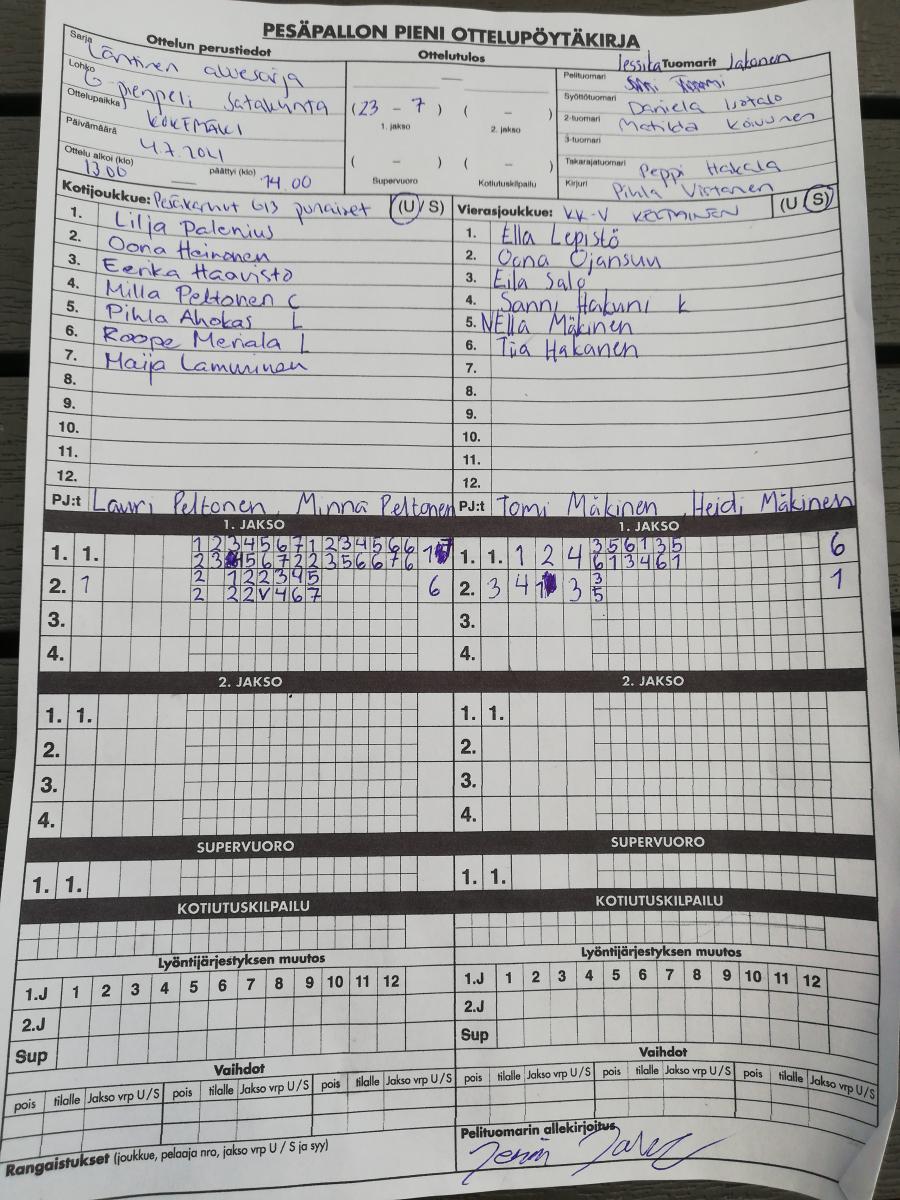 PESÄPALLON PIENI OTTELUPÖYTÄKIRJA
Ottelun perustiedot
Sarja Läntinen aluesarja
Lohko G pienpeli Satakunta
Ottelupaikka KOKEMÄKI
Päivämäärä 4.7.2021
Ottelu alkoi (klo) 13.00 päättyi (klo) 14.00
Ottelutulos
( 23 - 7 ) ( - )
1. jakso 2. jakso
( - ) ( - )
Supervuoro Kotiutuskilpailu
Jessika Tuomarit Jakonen
Pelituomari
Syöttötuomari Daniela Isotalo
2-tuomari Matilda Koivunen
3-tuomari
Takarajatuomari Peppi Hakala
Kirjuri Pihla Virtanen
Kotijoukkue: Pesäkarhut G13 punaiset (U / S)
1. Lilja Palenius
2. Oona Heinonen
3. Eerika Haavisto
4. Milla Peltonen C
5. Pihla Ahokas L
6. Roope Meriala L
7. Maija Lamminen
8.
9.
10.
11.
12.
PJ:t Lauri Peltonen, Minna Peltonen
Vierasjoukkue: KK-V KELTAINEN (U / S)
1. Ella Lepistö
2. Oona Ojansuu
3. Eila Salo
4. Sanni Hakuni k
5. NElla Mäkinen
6. Tiia Hakanen
7.
8.
9.
10.
11.
12.
PJ:t Tomi Mäkinen, Heidi Mäkinen
1. JAKSO
1. 1. 1 2 3 4 5 6 7 1 2 3 4 5 6 6
2 3 4 5 6 7 2 2 3 5 6 6 7 6
2. 1 2 1 2 2 3 4 5 6
2 2 2 V 4 6 7
3.
4.
1. JAKSO
1. 1. 1 2 4 3 5 6 1 3 5 6
6 1 3 4 6 1
2. 3 4 1 3 3 1
5
3.
4.
2. JAKSO
1. 1.
2.
3.
4.
2. JAKSO
1. 1.
2.
3.
4.
SUPERVUORO
1. 1.
SUPERVUORO
1. 1.
KOTIUTUSKILPAILU
KOTIUTUSKILPAILU
Lyöntijärjestyksen muutos
1.J 1 2 3 4 5 6 7 8 9 10 11 12
2.J
Sup
Lyöntijärjestyksen muutos
1.J 1 2 3 4 5 6 7 8 9 10 11 12
2.J
Sup
Vaihdot
pois tilalle Jakso vrp U / S pois tilalle Jakso vrp U / S pois tilalle Jakso vrp U / S
Vaihdot
pois tilalle Jakso vrp U / S pois tilalle Jakso vrp U / S pois tilalle Jakso vrp U / S
Rangaistukset (joukkue, pelaaja nro, jakso vrp U / S ja syy)
Pelituomarin allekirjoitus